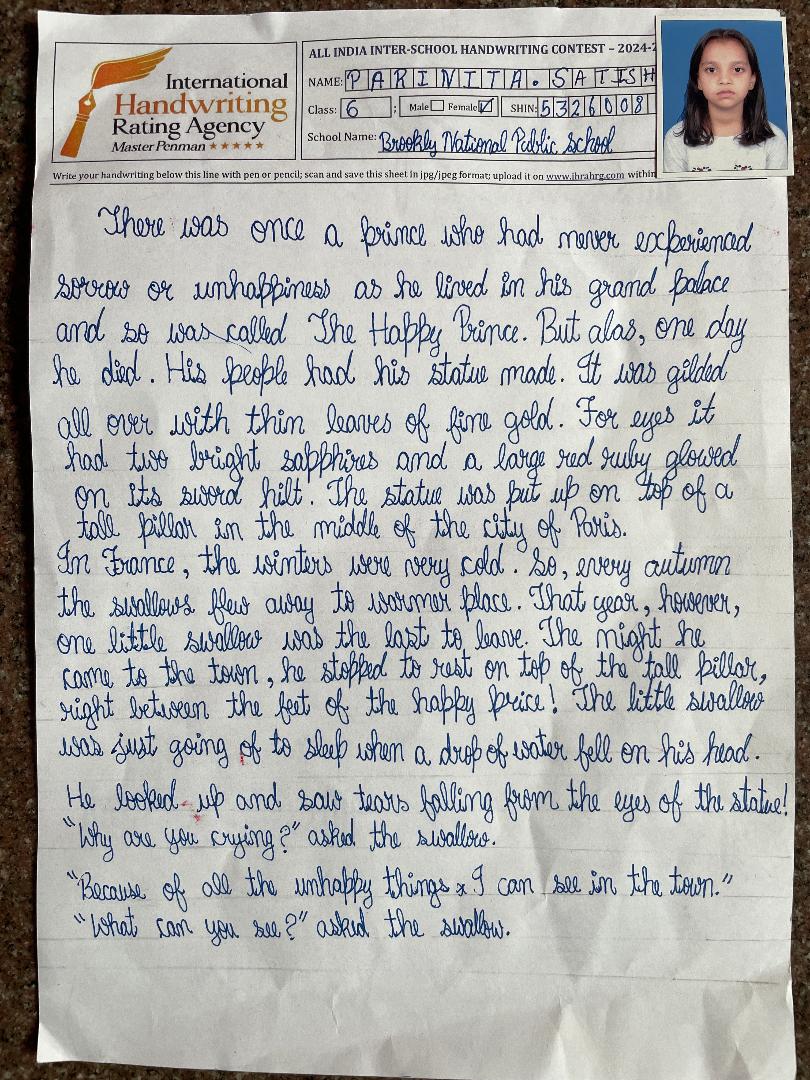 International
Handwriting
Rating Agency
Master Penman ★★★★★
ALL INDIA INTER-SCHOOL HANDWRITING CONTEST – 2024-2
NAME: PARINITA. SATISH
Class: 6 ; Male Female ✓ SHIN: 5326008
School Name: Brookly National Public School
Write your handwriting below this line with pen or pencil; scan and save this sheet in jpg/jpeg format; upload it on www.ihrahrg.com within
There was once a prince who had never experienced
sorrow or unhappiness as he lived in his grand palace
and so was called The Happy Prince. But alas, one day
he died. His people had his statue made. It was gilded
all over with thin leaves of fine gold. For eyes it
had two bright sapphires and a large red ruby glowed
on its sword hilt. The statue was put up on top of a
tall pillar in the middle of the city of Paris.
In France, the winters were very cold. So, every autumn
the swallows flew away to warmer place. That year, however,
one little swallow was the last to leave. The night he
came to the town, he stopped to rest on top of the tall pillar,
right between the feet of the happy price! The little swallow
was just going of to sleep when a drop of water fell on his head.
He looked up and saw tears falling from the eyes of the statue!
"Why are you crying?" asked the swallow.
"Because of all the unhappy things I can see in the town."
"What can you see?" asked the swallow.